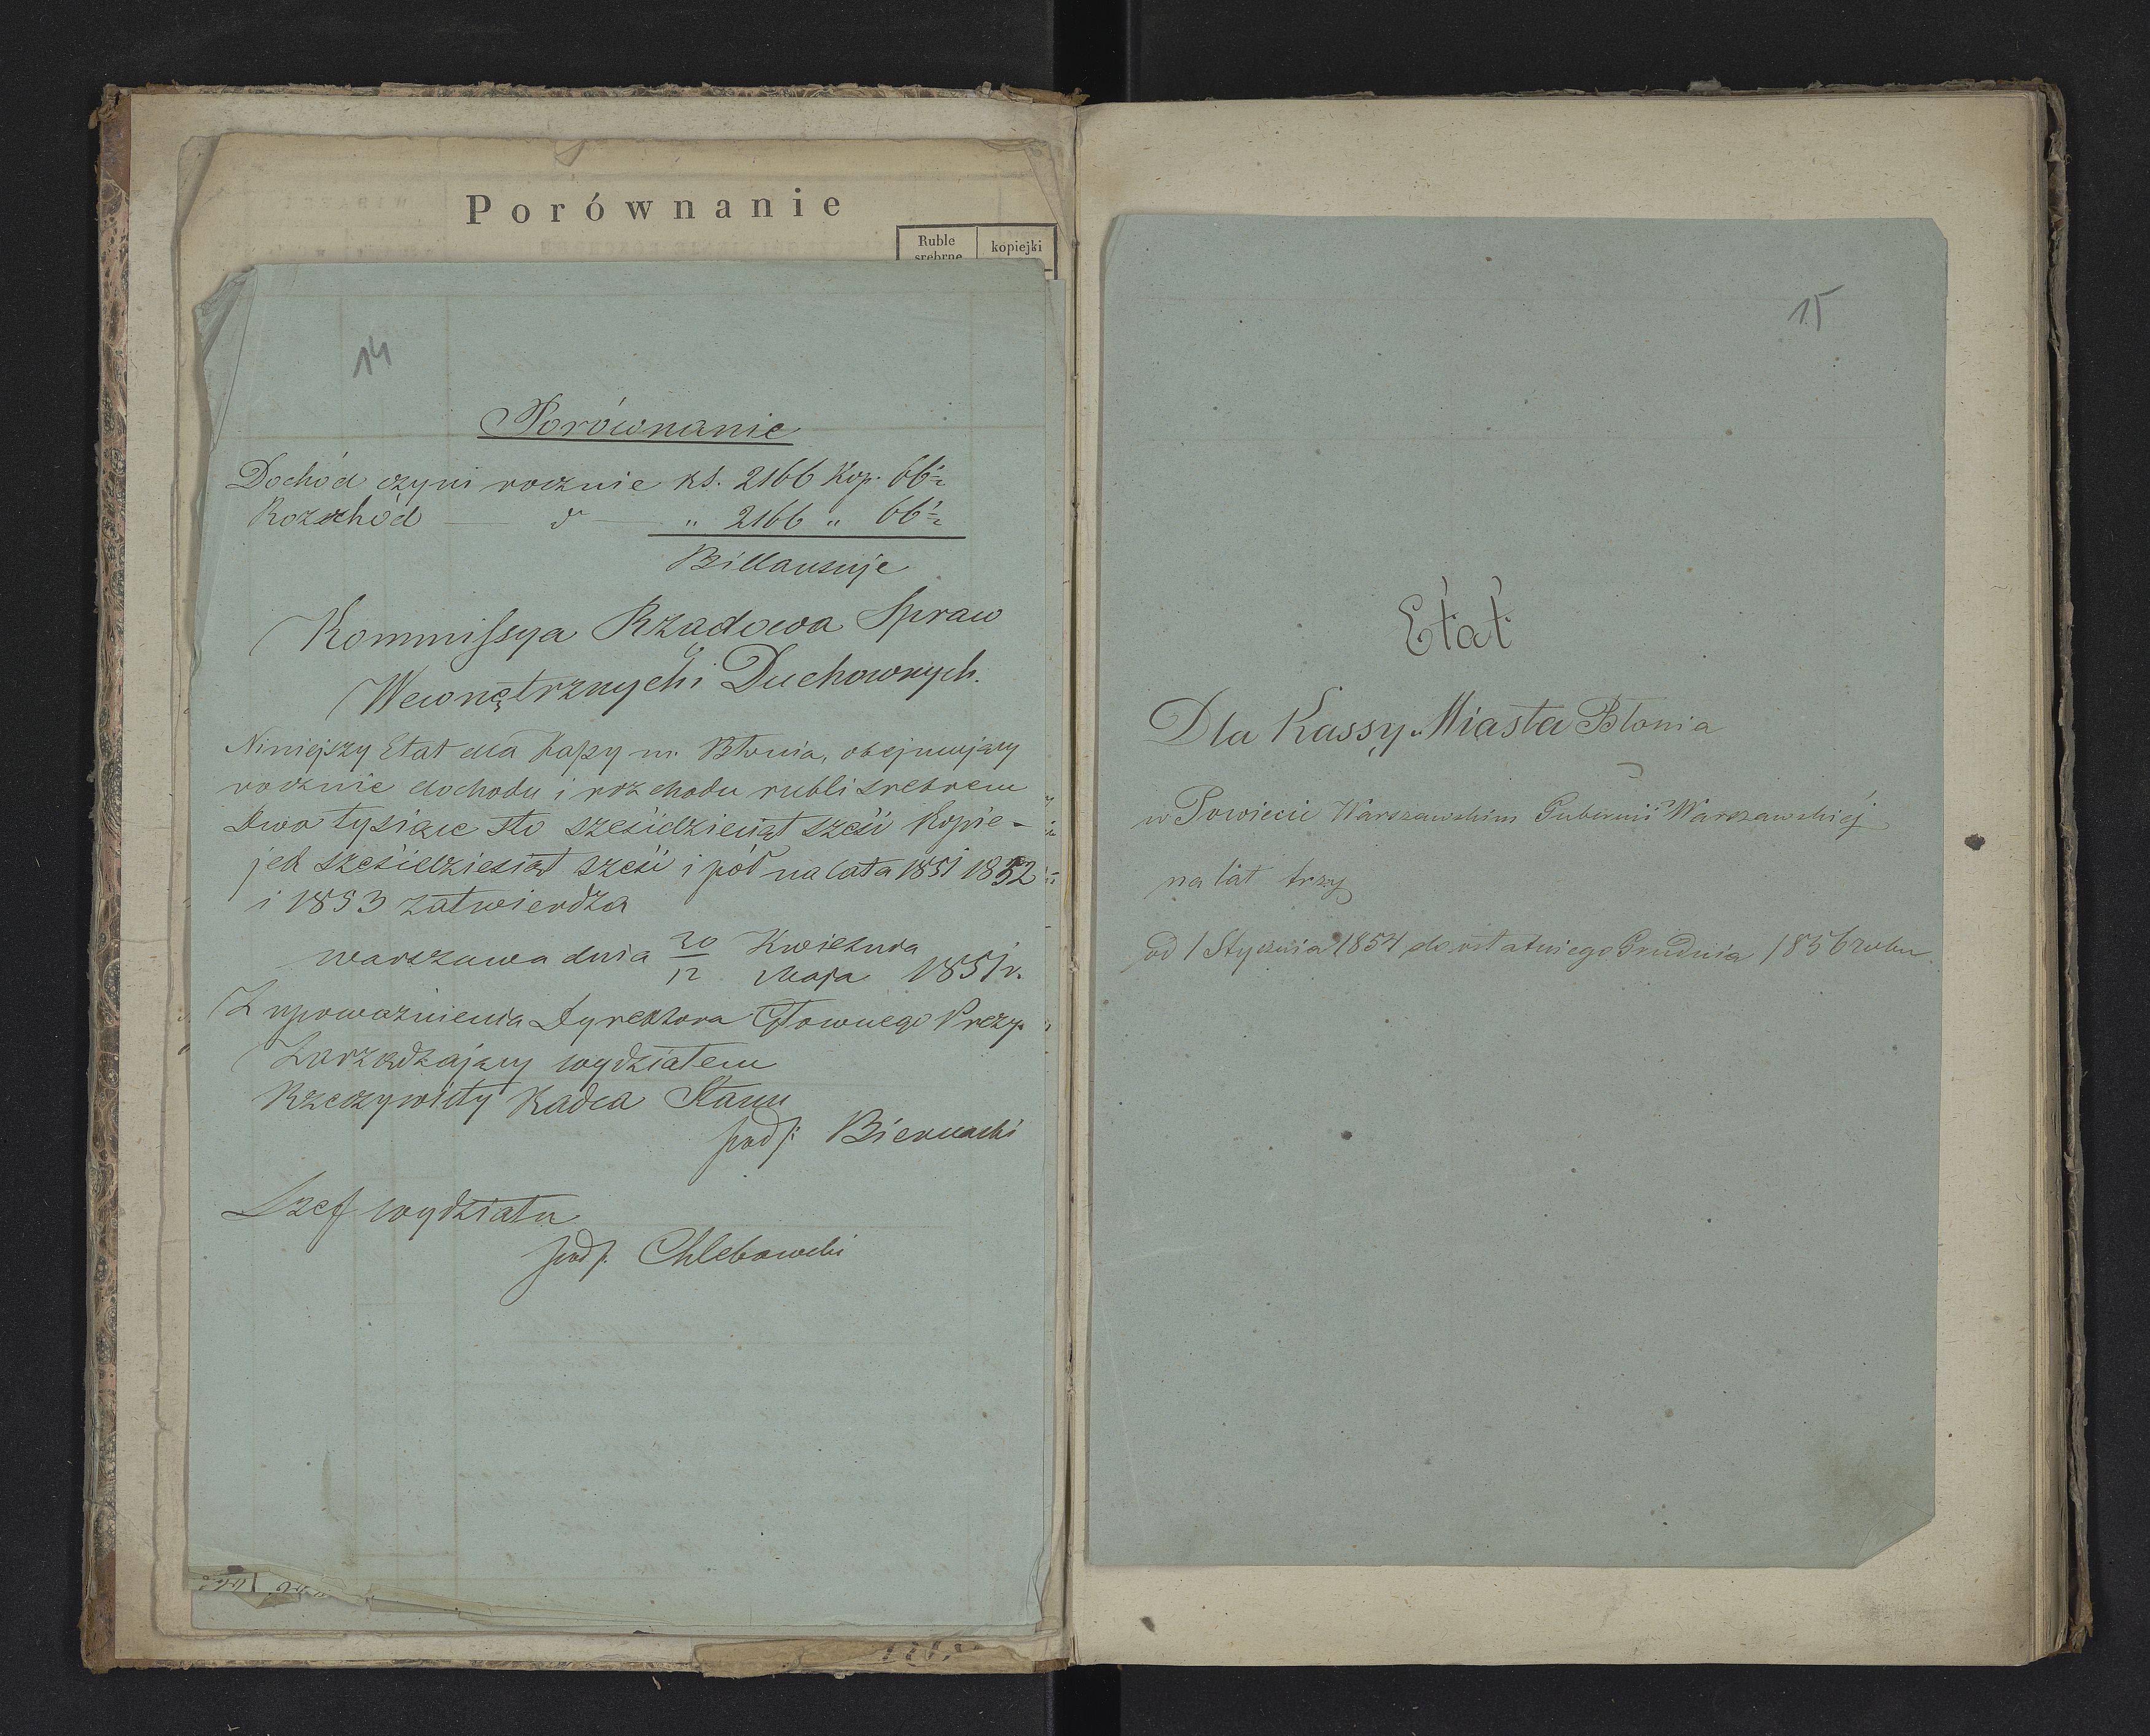 Porównanie
Ruble srebrne
kopiejki
14
Porównanie
Dochód czyni rocznie rs. 2166 Kop. 66½
Rozchód — d° — „ 2166 „ 66½
Billansuje
Kommissya Rządowa Spraw
Wewnętrznych i Duchownych.
Niniejszy Etat dla Kassy m. Błonia, obejmujący
rocznie dochodu i rozchodu rubli srebrem
Dwa tysiące sto sześćdziesiąt sześć Kopie-
jek sześćdziesiąt sześć i pół na lata 1851 1852
i 1853 zatwierdza
Warszawa dnia 20 Kwietnia
12 Maja 1851 r.
Z upoważnienia Dyrektora Głownego Prezy.
Zarządzający wydziałem
Rzeczywisty Radca Stanu
podp: Biernacki
Szef wydziału
podp. Chlebowski
15
Etat
Dla Kassy Miasta Błonia
w Powiecie Warszawskim Gubernii Warszawskiéj
na lat trzy
od 1 Stycznia 1854 do ostatniego Grudnia 1856 roku